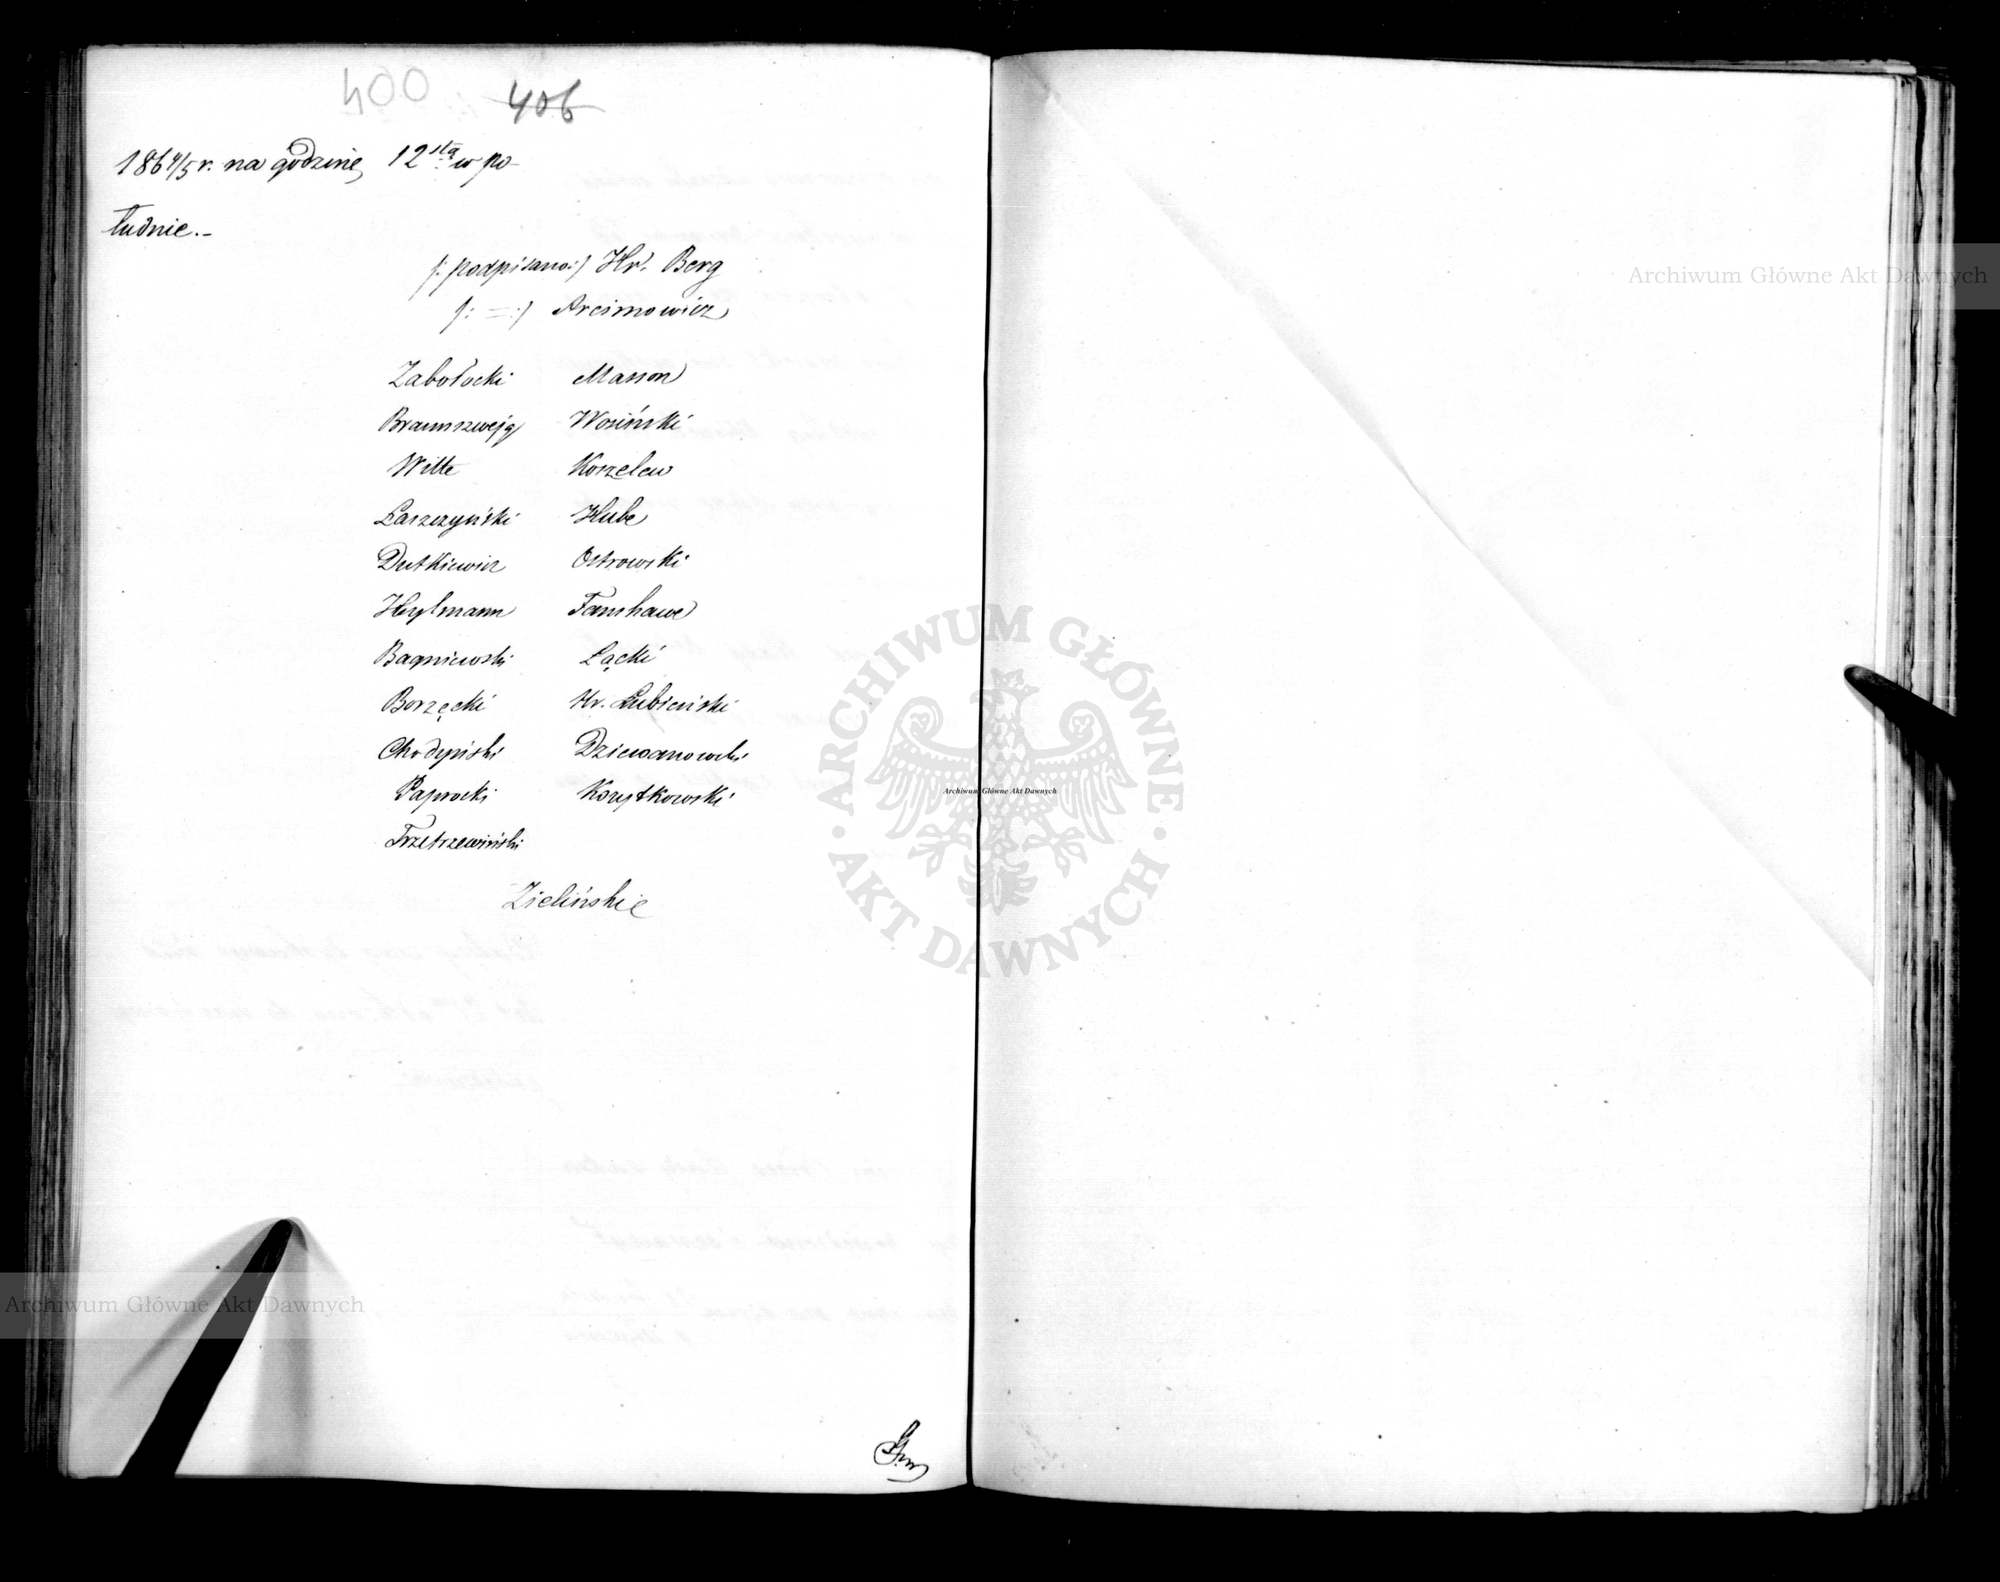 400 406
1864/5 r. na godzinę 12stą w po-
łudnie.-
/: podpisano:/ Hr. Berg
/: = :/ Arcimowicz
Zabołocki Masson
Braunszwejg Wosiński
Witte Koszelew
Łaszczyński Hube
Dutkiewicz Ostrowski
Heylmann Fanshawe
Bagniewski Łącki
Borzęcki Hr. Łubieński
Chodyński Dziewanowski
Paprocki Korytkowski
Trzetrzewiński
Zieliński
Archiwum Główne Akt Dawnych
ARCHIWUM GŁÓWNE AKT DAWNYCH
Archiwum Główne Akt Dawnych
Archiwum Główne Akt Dawnych